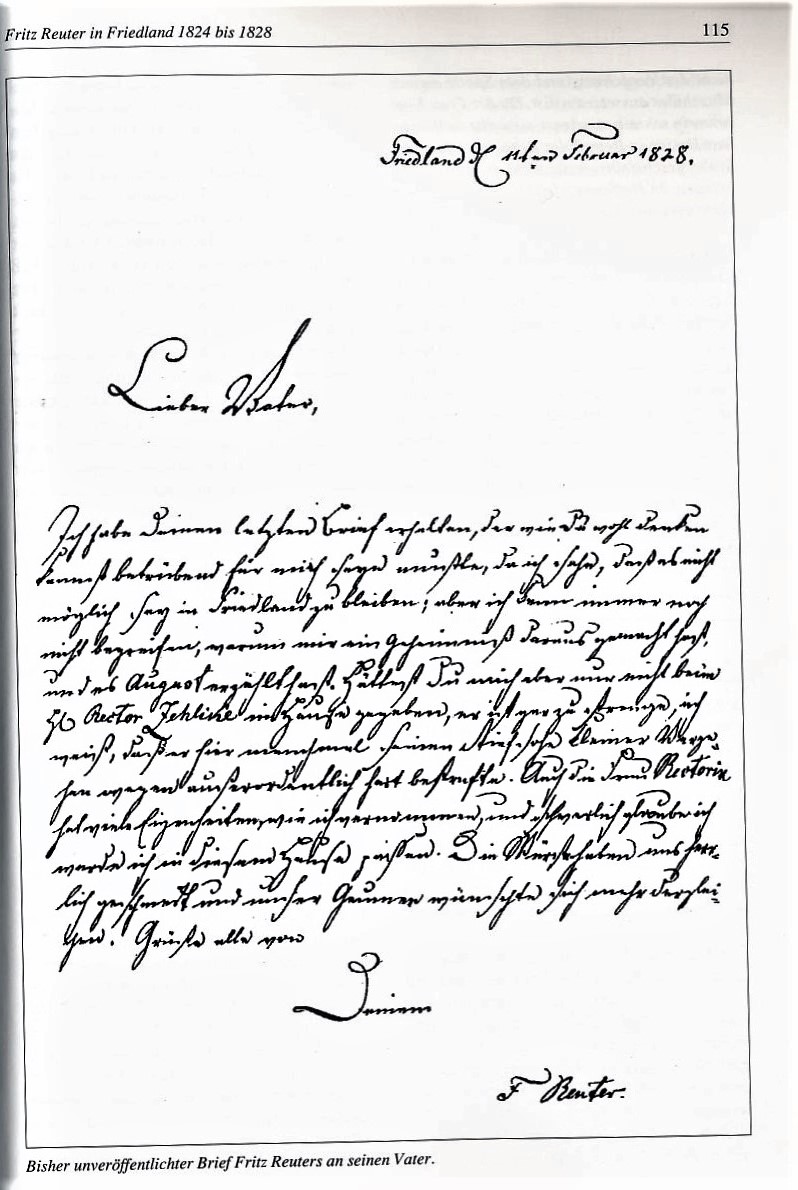 Fritz Reuter in Friedland 1824 bis 1828
115
Friedland d 11ten Februar 1828.
Lieber Vater,
Ich habe Deinen letzten Brief erhalten, der wie Du wohl denken
kannst betrübend für mich seyn mußte, da ich sehe, daß es nicht
möglich sey in Friedland zu bleiben; aber ich kann immer noch
nicht begreifen, warum mir ein Geheimniß daraus gemacht hast,
und es August erzählt hast. Hättest Du mich aber nur nicht beim
H Rector Jehlicke in Hause gegeben, er ist gar zu strenge, ich
weiß, daß er hier manchmal seinen Stiefsohn kleiner Verge-
hen wegen außerordentlich hart bestrafte. Auch die Frau Rectorin
hat viele Eigenheiten, wie ich vernommen, und schwerlich glaube ich
werde ich in diesem Hause passen. Die Würste haben uns herr-
lich geschmekt und unser Gaumen wünschte sich mehr derglei-
chen. Grüße alle von
Deinem
F Reuter.
Bisher unveröffentlichter Brief Fritz Reuters an seinen Vater.